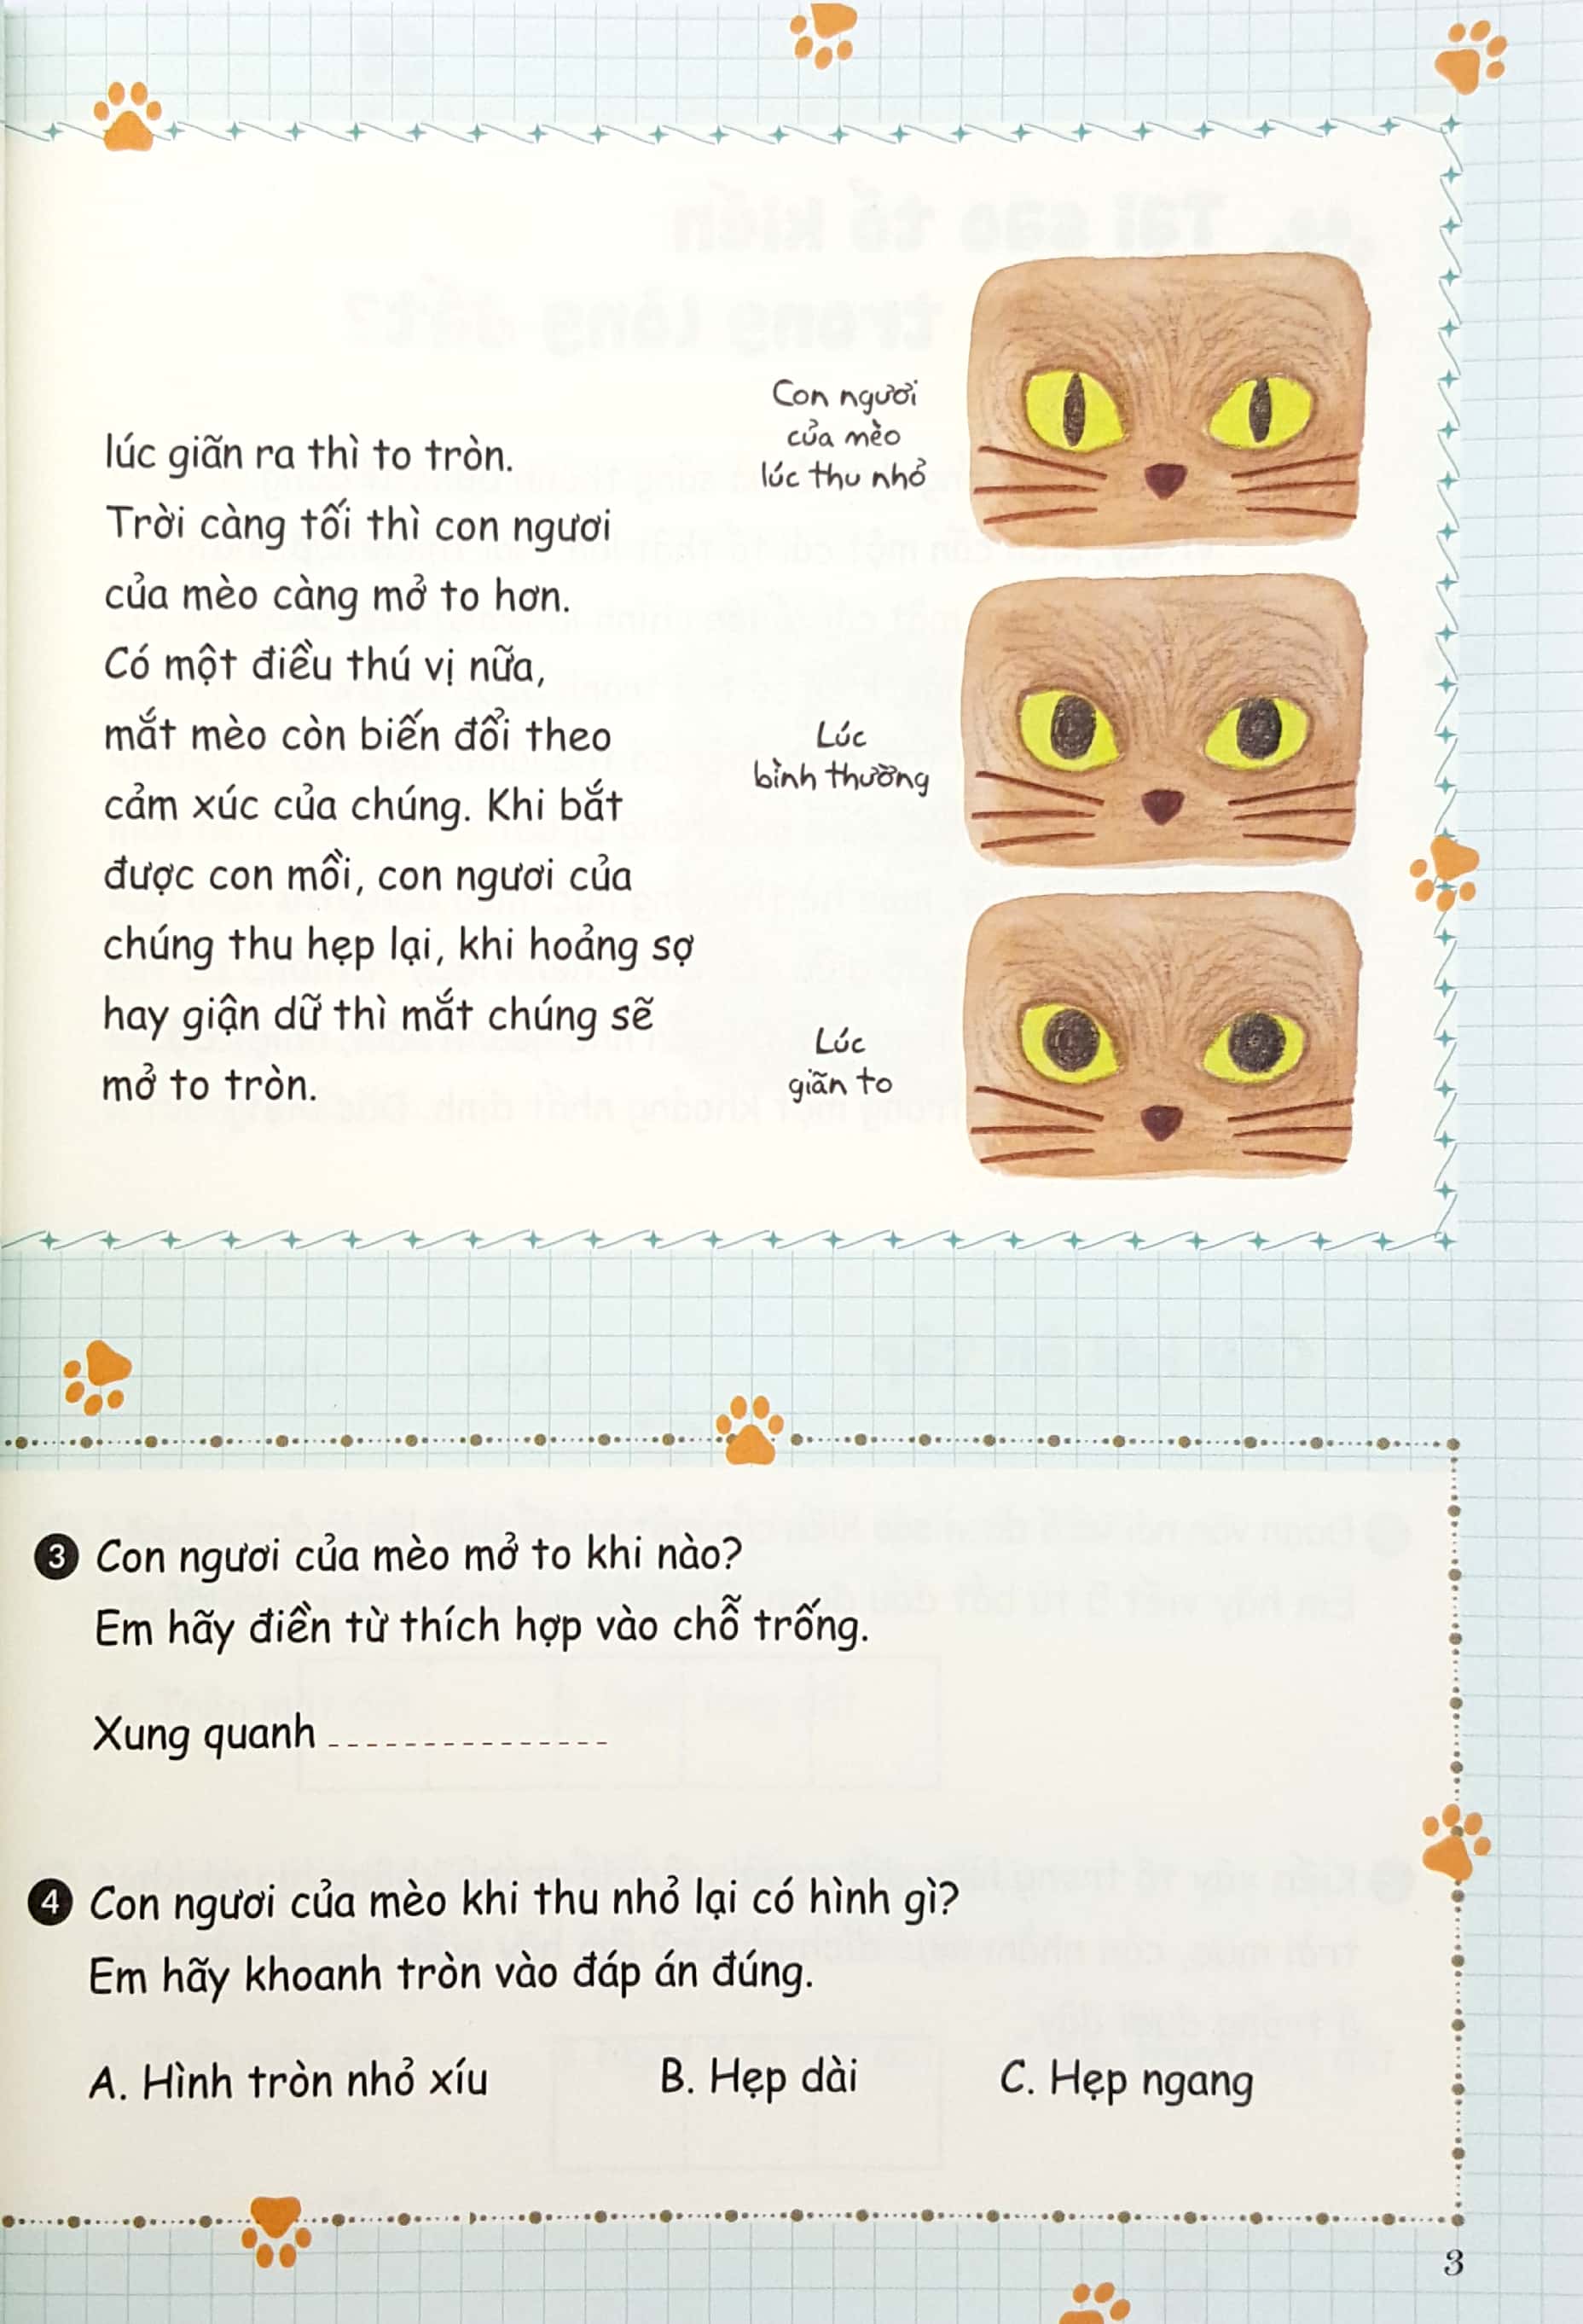 lúc giãn ra thì to tròn.
Trời càng tối thì con ngươi
của mèo càng mở to hơn.
Có một điều thú vị nữa,
mắt mèo còn biến đổi theo
cảm xúc của chúng. Khi bắt
được con mồi, con ngươi của
chúng thu hẹp lại, khi hoảng sợ
hay giận dữ thì mắt chúng sẽ
mở to tròn.
Con ngươi
của mèo
lúc thu nhỏ
Lúc
bình thường
Lúc
giãn to
3 Con ngươi của mèo mở to khi nào?
Em hãy điền từ thích hợp vào chỗ trống.
Xung quanh
4 Con ngươi của mèo khi thu nhỏ lại có hình gì?
Em hãy khoanh tròn vào đáp án đúng.
A. Hình tròn nhỏ xíu B. Hẹp dài C. Hẹp ngang
3